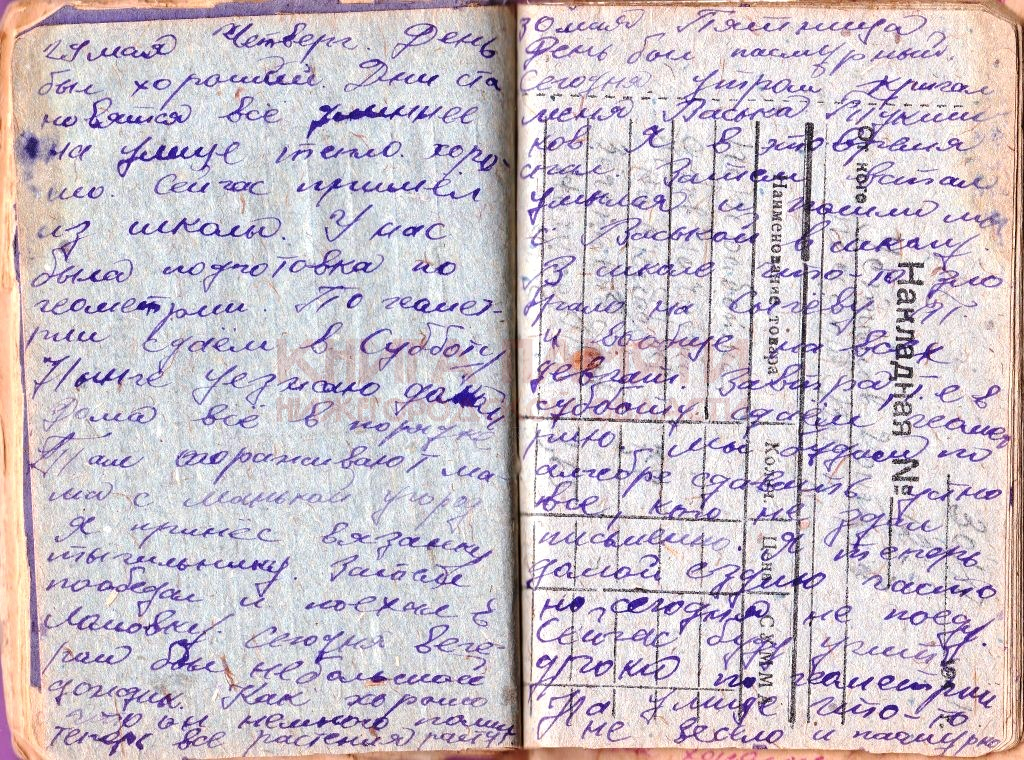 29 мая Четверг. День
был хороший. Дни ста
новятся всё длиннее
на улице тепло. хоро-
шо. Сейчас пришёл
из школы. У нас
была подготовка по
геометрии. По геомет-
рии сдаём в Субботу
Нынче уезжаю домой
Дома всё в порядке
Там огораживают ма-
ма с Манькой угород
Я принёс вязанку
тычильнику. Затем
пообедал и поехал в
Ламовку. Сегодня вече-
ром был небольшой
дождик. Как хорошо
что он немного помочил
Теперь все растения растут
30 мая Пятница
День был пасмурный.
Сегодня утром кричал
меня Васька Тукин
ков. Я в это время
спал. Затем встал
умылся и пошли мы
с Васькой в школу.
В школе что-то зло
брали на Сычёву Т.
и вообще на всех
девчат. Завтра т.е в
субботу сдаём геоме
рию. Мы будем по
алгебре сдавать устно
все кто не здал
письменно. Я теперь
домой езжу часто
но сегодня не поеду
Сейчас буду учить
уроки по геометрии
На улице что-то
не весело и пасмурно
Накладная №
От кого
Наименование товара
Колич.
Цена
СУММА